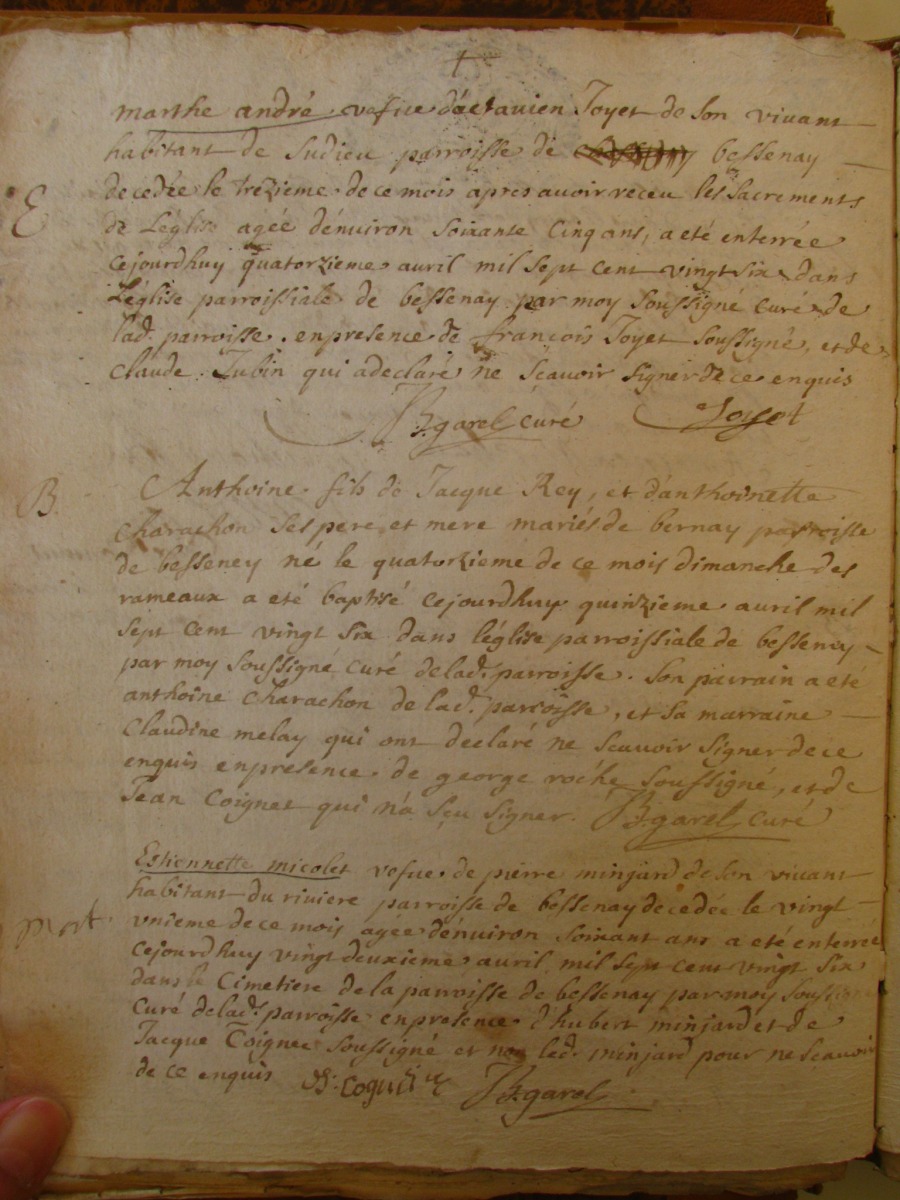 marthe andré vefue d'octauien Joyet de son viuant
habitant de Sudieu parroisse de bessenay
decedée le trezieme de ce mois apres auoir receu les Sacrements
E
de L'église agée d'énuiron soixante cinq ans, a eté enterrée
cejourdhuy quatorzieme auril mil sept cent vingt six dans
L'église parroissiale de bessenay par moy soussigné curé de
lad. parroisse. en presence de françois Joyet soussigné, et de
claude Jubin qui a declaré ne scauoir signer de ce enquis
garel curé Joyet
B
Anthoine fils de Jacque Rey, et d'anthoinette
charachon ses pere et mere mariés de bernay parroisse
de besseney né le quatorzieme de ce mois dimanche des
rameaux a eté baptisé cejourdhuy quinzieme auril mil
sept cent vingt six dans l'église parroissiale de bessenay
par moy soussigné curé de lad. parroisse. son parrain a eté
anthoine charachon de lad. parroisse, et sa marraine
claudine melay qui ont declaré ne scauoir signer de ce
enquis en presence de george roche soussigné, et de
Jean Coignet qui n'a sçu signer. garel curé
Estiennette micolet vefue de pierre minjard de son viuant
habitant du riuiere parroisse de bessenay decedée le vingt
mort
vnieme de ce mois agée d'énuiron soixant ans a eté enterrée
cejourdhuy vingt deuxieme auril mil sept cent vingt six
dans le Cimetiere de la parroisse de bessenay par moy soussigné
curé de lad. parroisse en presence d'hubert minjard et de
Jacque Coignet soussigné et non led. minjard pour ne scauoir
de ce enquis garel